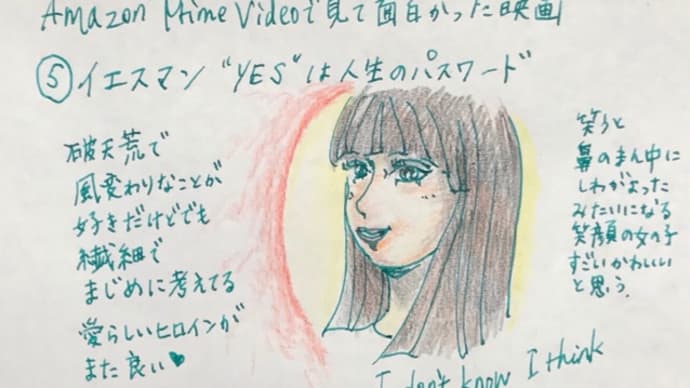 Amazon Prime Videoで見て面白かった映画
⑤イエスマン “YES”は人生のパスワード
破天荒で
風変わりなことが
好きだけどでも
繊細で
まじめに考えてる
愛らしいヒロインが
また良い♥
笑うと
鼻のまん中に
しわがよった
みたいになる
笑顔の女の子
すごいかわいい
と思う.
I don't know I think